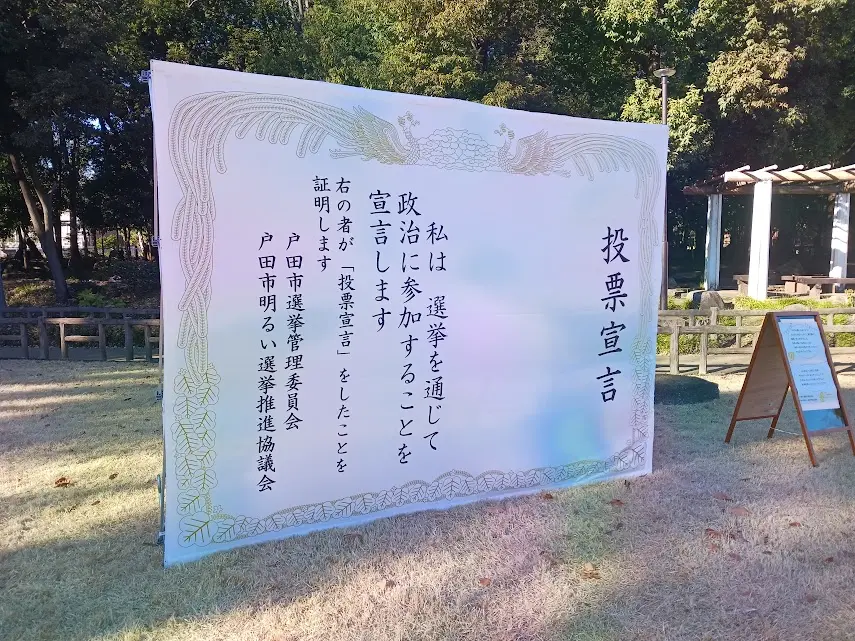 投票宣言
私は 選挙を通じて
政治に参加することを
宣言します
右の者が「投票宣言」をしたことを
証明します
戸田市選挙管理委員会
戸田市明るい選挙推進協議会